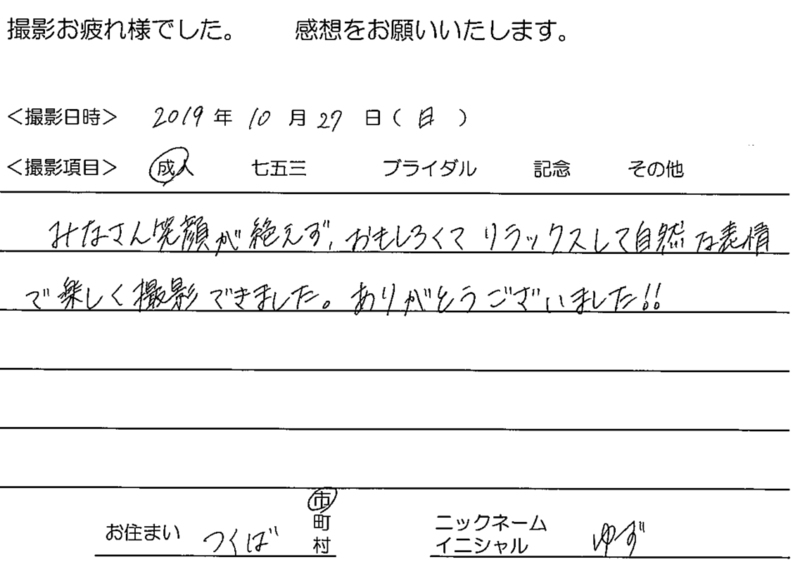 撮影お疲れ様でした。　感想をお願いいたします。
＜撮影日時＞ 2019 年 10 月 27 日（ 日 ）
＜撮影項目＞ 成人 七五三 ブライダル 記念 その他
みなさん笑顔が絶えず、おもしろくて リラックスして自然な表情
で楽しく撮影できました。ありがとうございました!!
お住まい つくば 市 町 村 ニックネーム イニシャル ゆず